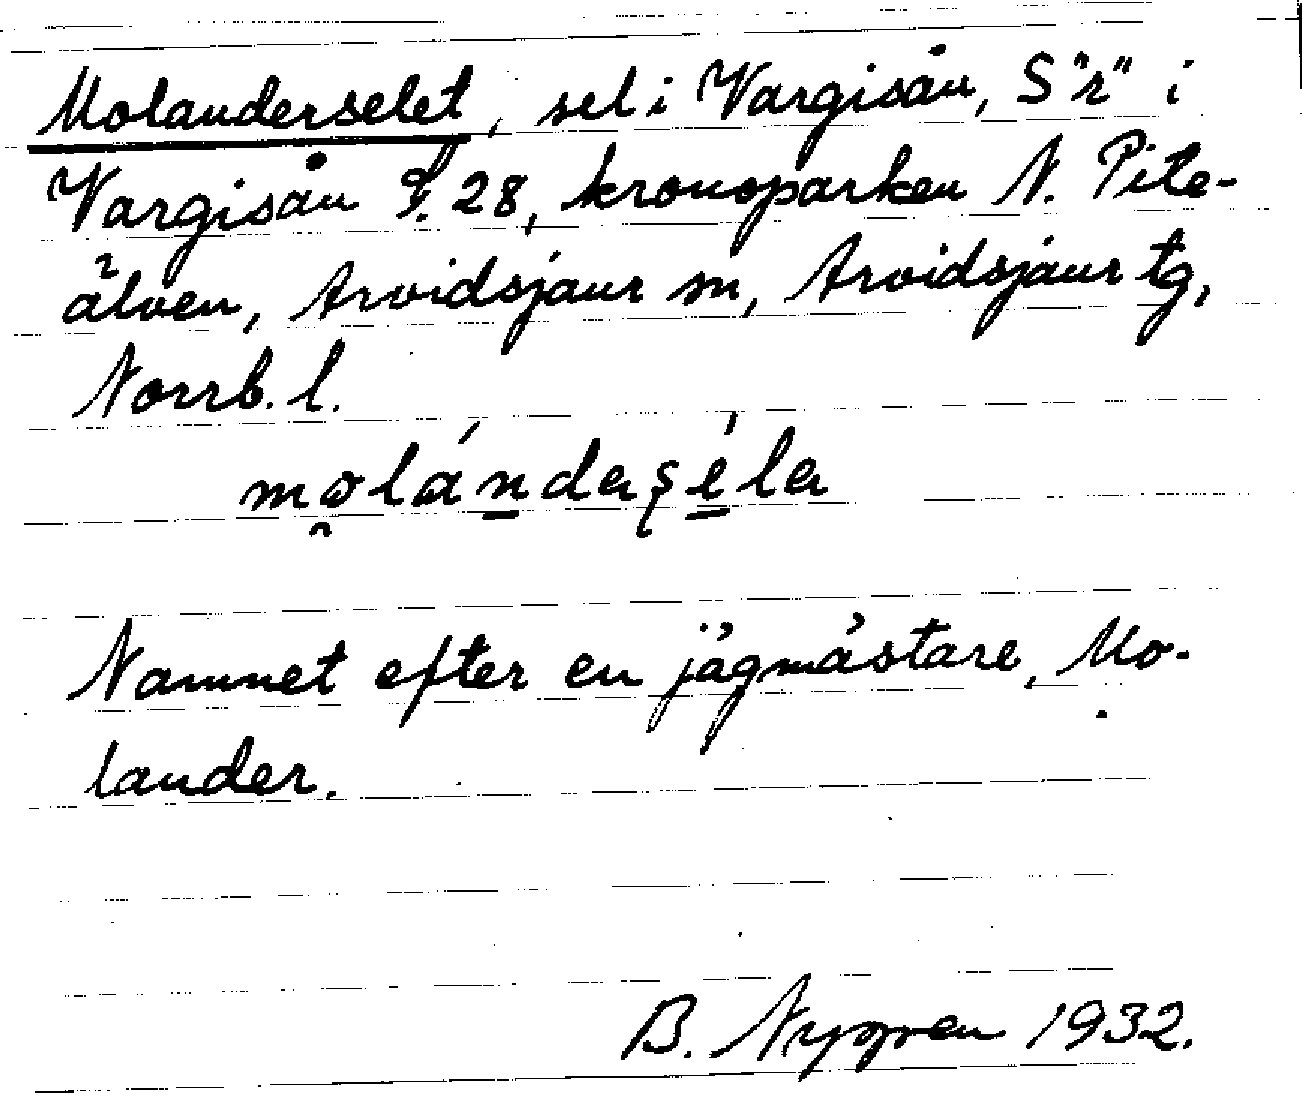 Molanderselet, sel i Vargisån, S"r" i
Vargisån S. 28, kronoparken N. Pite-
älven, Arvidsjaur sn, Arvidsjaur tg,
Norrb. l.
molándaséla
Namnet efter en jägmästare, Mo-
lander.
B. Nygren 1932.